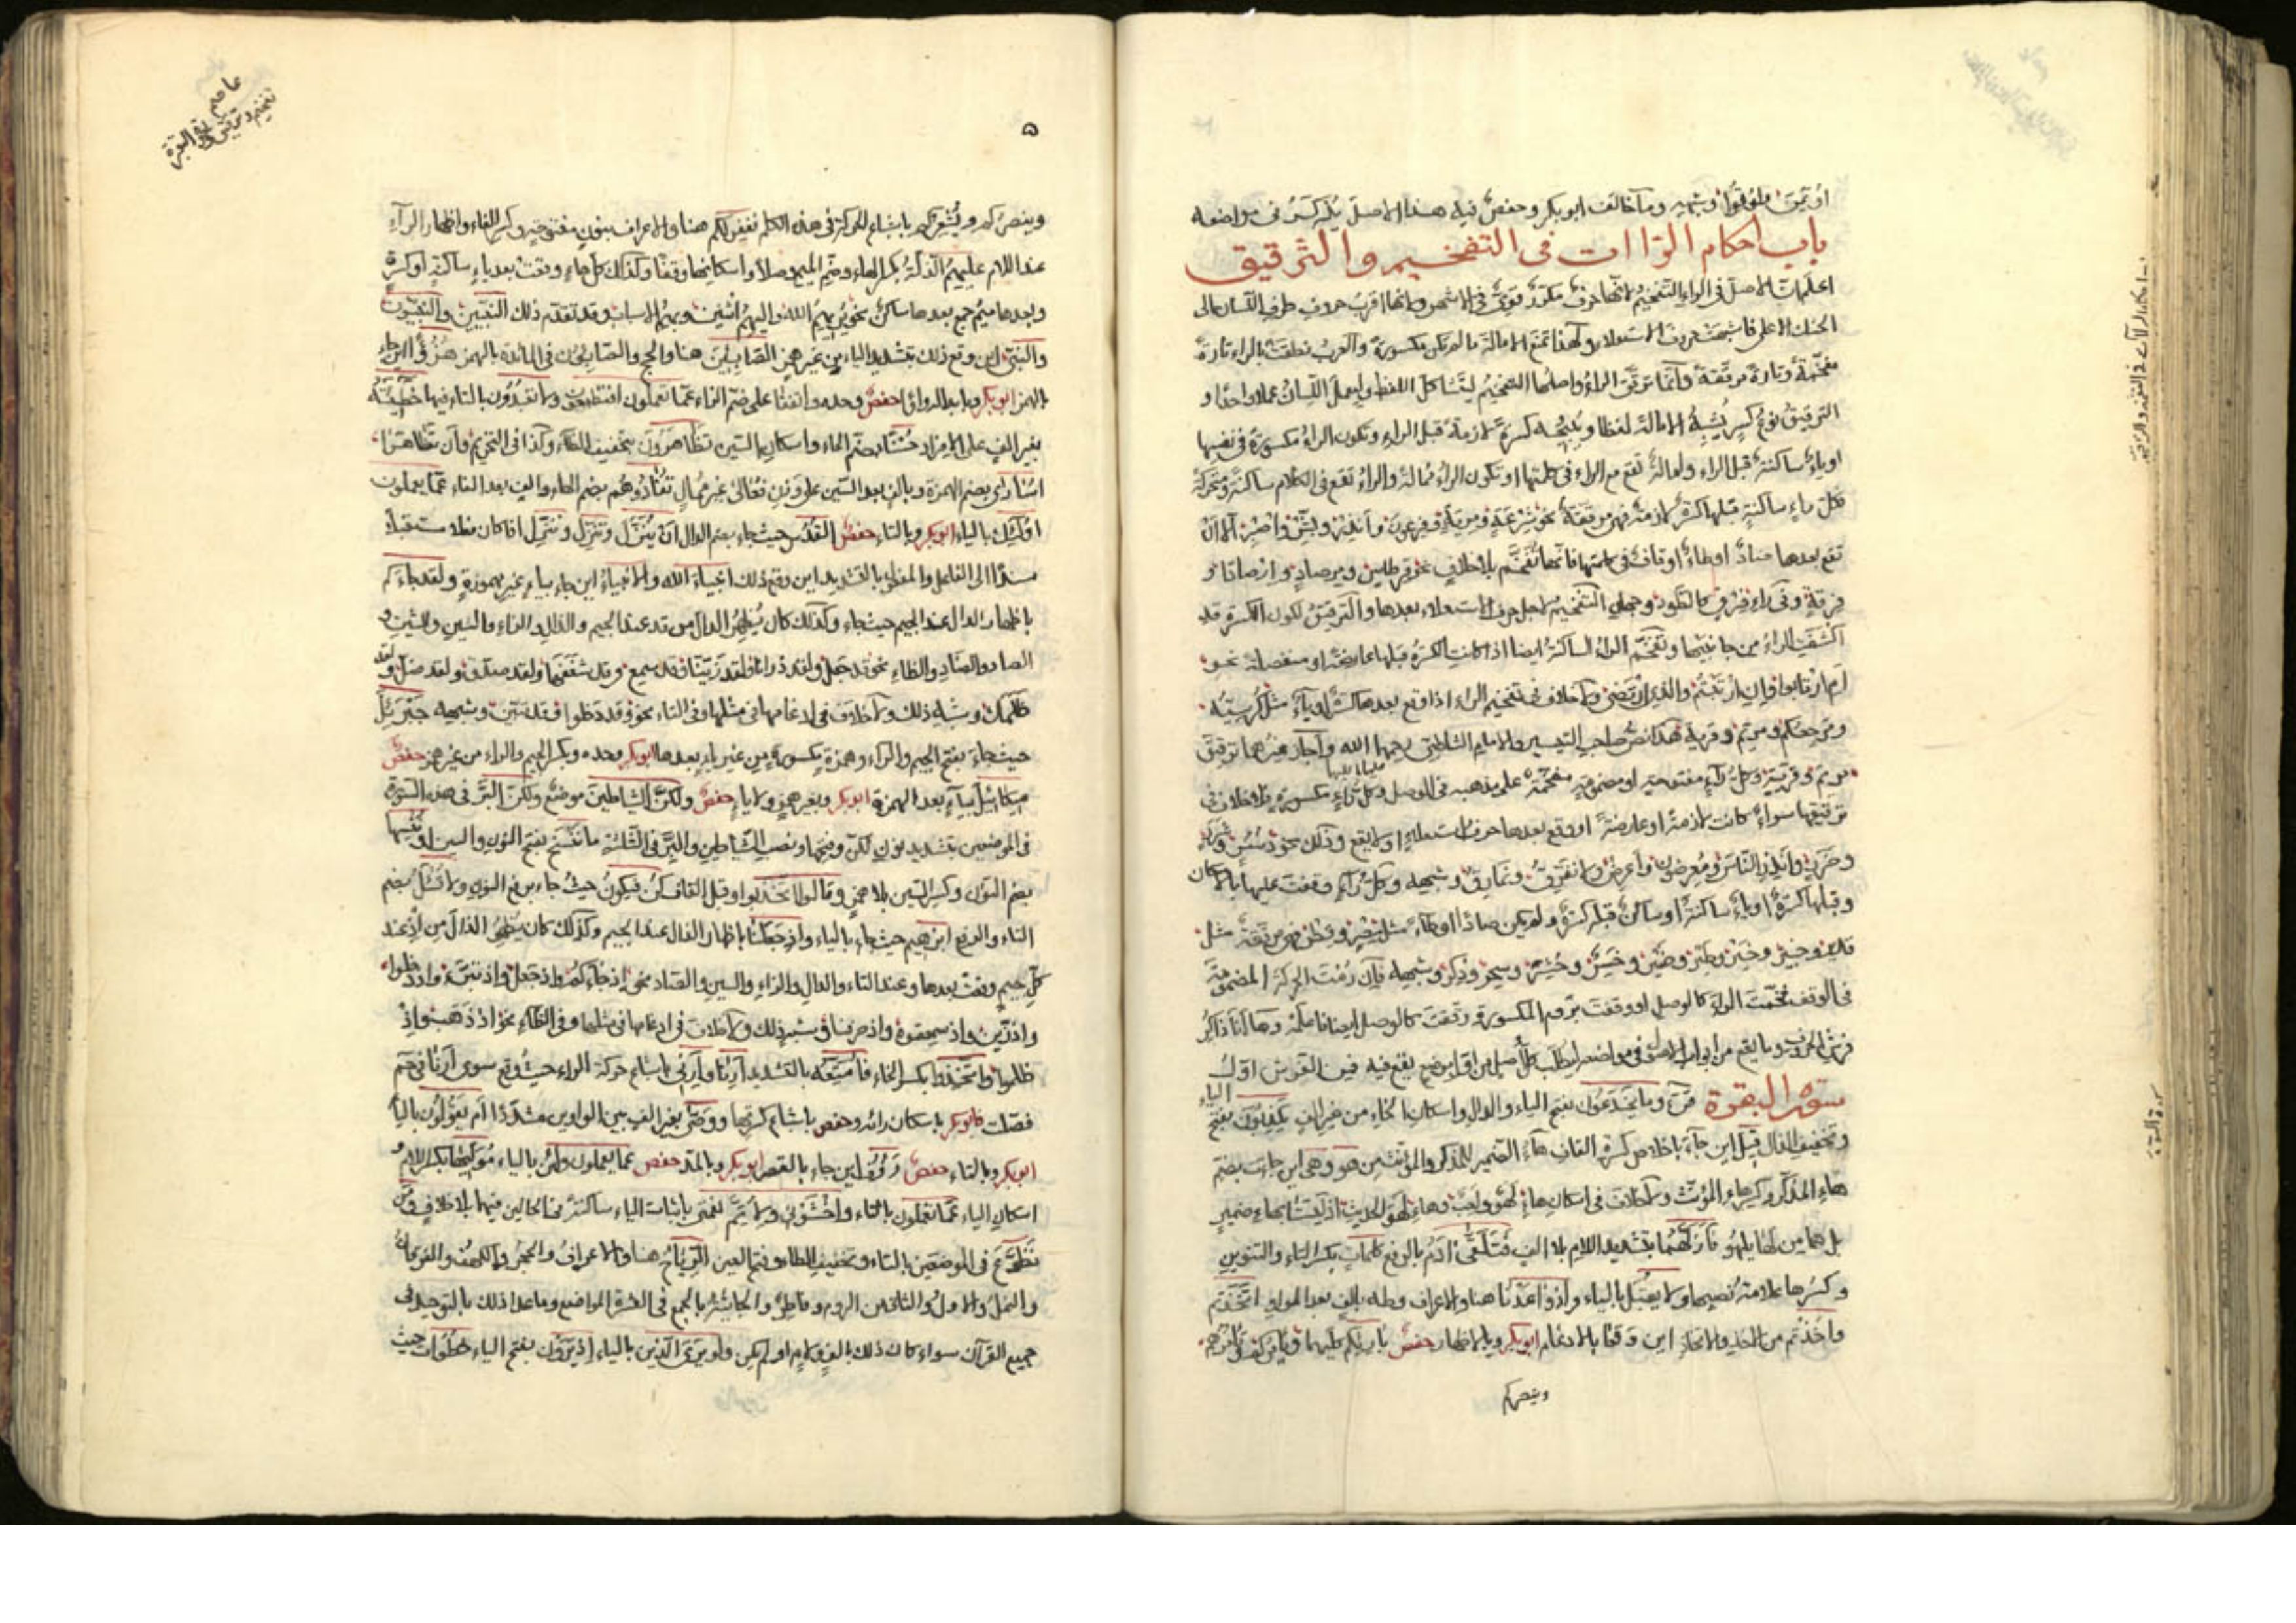 وما خالف ابو بكر وحفص فيه هذا الاصل يذكر في مواضعه
باب احكام الرّاات في التفخيم والترقيق
اعلم ان الاصل في الراء التفخيم لانها حرف مكرر قوي في الاشهر وانها اقرب حروف طرف اللسان الى
الحنك الاعلى فاشبهت حروف الاستعلاء ولهذا تمنع الامالة ما لم تكن مكسورة والعرب نطقت بالراء تارة
مفخمة وتارة مرققة وانما ترقق الراء واصلها التفخيم ليتشاكل اللفظ وليعمل اللسان عملا واحدا و
الترقيق نوع كسر يشبه الامالة لفظا ويبيحه كسرة لازمة قبل الراء وتكون الراء مكسورة في نفسها
او ياء ساكنة قبل الراء وامالة تقع مع الراء في كلمتها او تكون الراء ممالة والراء تقع في الكلام ساكنة ومتحركة
فكل راء ساكنة قبلها كسرة لازمة فهي مرققة نحو شرعة ومرية وفرعون وانذر وبشر واصبر الا ان
تقع بعدها صاد او طاء او قاف في كلمتها فانها تفخم بلا خلاف نحو قرطاس ومرصاد وارصادا و
فرقة وفي راء فرق كالطود وجهان التفخيم لاجل حرف الاستعلاء بعدها والترقيق لكون الكسرة قد
اكتنفت الراء من جانبيها وتفخم الراء الساكنة ايضا اذا كانت الكسرة قبلها عارضة او منفصلة نحو
ام ارتابوا وان ارتبتم والذي ارتضى ولا خلاف في تفخيم الراء اذا وقع بعدها الف او ياء مثل كرسيه
ومرجعكم ومريم وقرية هكذا نص صاحب التيسير والامام الشاطبي رحمهما الله واجاز غيرهما ترقيق
مريم وقرية وكل راء مفتوحة او مضمومة مفخمة على مذهبه في الوصل وكل راء مكسورة فلا خلاف في
ترقيقها سواء كانت لازمة او عارضة او وقع بعدها حرف استعلاء او لا يقع وذلك نحو
وانذر الناس ومعرضون واعرض ولا نفرق ونمارق وشبهه وكل راء وقفت عليها بالاسكان
وقبلها كسرة او ياء ساكنة او ساكن قبله كسرة ولم يكن صادا او طاء مثل مصر وقطر فهي مرققة مثل
وخبير وخير وطير وضير وسحر وذكر وشبهه فان رمت الحركة المضمومة
في الوقف فخمت الراء كالوصل او وقفت بروم المكسورة رققت كالوصل ايضا فاعلمه وها انا ذاكر
فرش الحروف وما يقع من ابواب الاصول في مواضعه ليطلب كل اصل من اول موضع يقع فيه فمن الفرش اول
سورة البقرة قرآ وما يخدعون بفتح الياء والدال واسكان الخاء من غير الف يكذبون بفتح الياء
وتخفيف الذال قيل اين جاء باخلاص كسرة القاف هاء الضمير للمذكر والمؤنث من هو وهي اين جاءت بضم
هاء المذكر وكسر هاء المؤنث ولا خلاف في اسكان هاء لهو ولعب وهاء لهو الحديث اذ ليستا بهاء ضمير
بل هما من لها يلهو فازلهما بتشديد اللام بلا الف فتلقى ادم بالرفع كلمات بكسر التاء والتنوين
وكسرها علامة نصبها ولا يقبل بالياء واذ واعدنا هنا والاعراف وطه بالف بعد الواو اتخذتم
واخذتم من الاخذ والاتخاذ اين وقعا بالادغام ابو بكر وبالاظهار حفص بارئكم عليهما ويامركم
وينصركم
٥
عاصم
سورة البقرة
وينصركم ويشعركم باشباع الحركة في هذه الكلم نغفر لكم هنا والاعراف بنون مفتوحة وكسر الفاء واظهار الراء
عند اللام عليهم الذلة بكسر الهاء وضم الميم وصلا واسكانها وقفا وكذلك كل هاء وقعت بعد ياء ساكنة او كسرة
وبعدها ميم جمع بعدها ساكن نحو يريهم الله واليهم اثنين وبهم الاسباب وقد تقدم ذلك النبيين والنبيون
والنبي اين وقع ذلك بتشديد الياء من غير همز الصابئين هنا والحج والصابئون في المائدة بالهمز هزؤا اين جاء
بالهمز ابو بكر وبابدال واوا حفص وحده واتفقا على ضم الزاء عما تعملون افتطمعون ولا تعبدون بالتاء فيها خطيئته
بغير الف على الافراد حسنا بضم الحاء واسكان السين تظاهرون بتخفيف الظاء وكذا في التحريم وان تظاهرا
اسارى بضم الهمزة وبالف بعد السين على وزن فعالى غير ممال تفادوهم بضم التاء والف بعد الفاء عما يعملون
اولئك بالياء ابو بكر وبالتاء حفص القدس حيث جاء بضم الدال ان ينزل وتنزل وننزل اذا كان فعلا مستقبلا
مسندا الى الفاعل والمفعول بالتشديد اين وقع ذلك انبياء الله والانبياء اين جاء بياء غير مهموزة ولقد جاءكم
باظهار الدال عند الجيم حيث جاء وكذلك كان يظهر الدال من قد عند الجيم والذال والزاء والسين والشين و
الصاد والضاد والظاء نحو قد جعل ولقد ذرانا ولقد زينا وقد سمع وقد شغفها ولقد صدق ولقد ضل ولقد
ظلمك وشبه ذلك ولا خلاف في ادغامها في مثلها وفي التاء نحو وقد دخلوا وقد تبين وشبهه جبرئل
حيث جاء بفتح الجيم والراء وهمزة مكسورة من غير ياء بعدها ابو بكر وحده وبكسر الجيم والراء من غير همز حفص
ميكائيل بياء بعد الهمزة ابو بكر وبغير همز ولا ياء حفص ولكن الشياطين موضع ولكن البر في هذه السورة
في الموضعين بتشديد نون لكن وفتحها ونصب الشياطين والبر في الثلثة ما ننسخ بفتح النون والسين او ننسها
بضم النون وكسر السين بلا همز وقالوا اتخذ بواو قبل القاف كن فيكون حيث جاء برفع النون ولا تسئل بضم
التاء والرفع ابرهيم حيث جاء بالياء واذ جعلنا باظهار الذال عند الجيم وكذلك كان يظهر الذال من اذ عند
كل جيم وقعت بعدها وعند التاء والدال والزاء والسين والصاد نحو اذ جاءكم واذ جعل واذ تبرء واذ دخلوا
واذ زين واذ سمعتموه واذ صرفنا وشبه ذلك ولا خلاف في ادغامها في مثلها وفي الظاء نحو اذ ذهب واذ
ظلموا واتخذوا بكسر الخاء فامتعه بالتشديد ارنا وارني باشباع حركة الراء حيث وقع سوى ارنا في حم
فصلت فابو بكر باسكان رائه وحفص باشباع كسرتها ووصى بغير الف بين الواوين مشددا ام يقولون بالياء
ابو بكر وبالتاء حفص رؤف اين جاء بالقصر ابو بكر وبالمد حفص عما يعملون ولئن بالياء موليها بكسر اللام و
اسكان الياء عما تعملون بالتاء واخشوني ولاتم نعمتي باثبات الياء ساكنة في الحالين فيهما بلا خلاف ومن
تطوع في الموضعين بالتاء وتخفيف الطاء وفتح العين الرياح هنا والاعراف والحجر والكهف والفرقان
والنمل والاول والثاني من الروم وفاطر والجاثية بالجمع في العشرة المواضع وما عدا ذلك بالتوحيد في
جميع القرآن سواء كان ذلك بالف ولام او لم يكن ولو يرى الذين بالياء اذ يرون بفتح الياء خطوات حيث